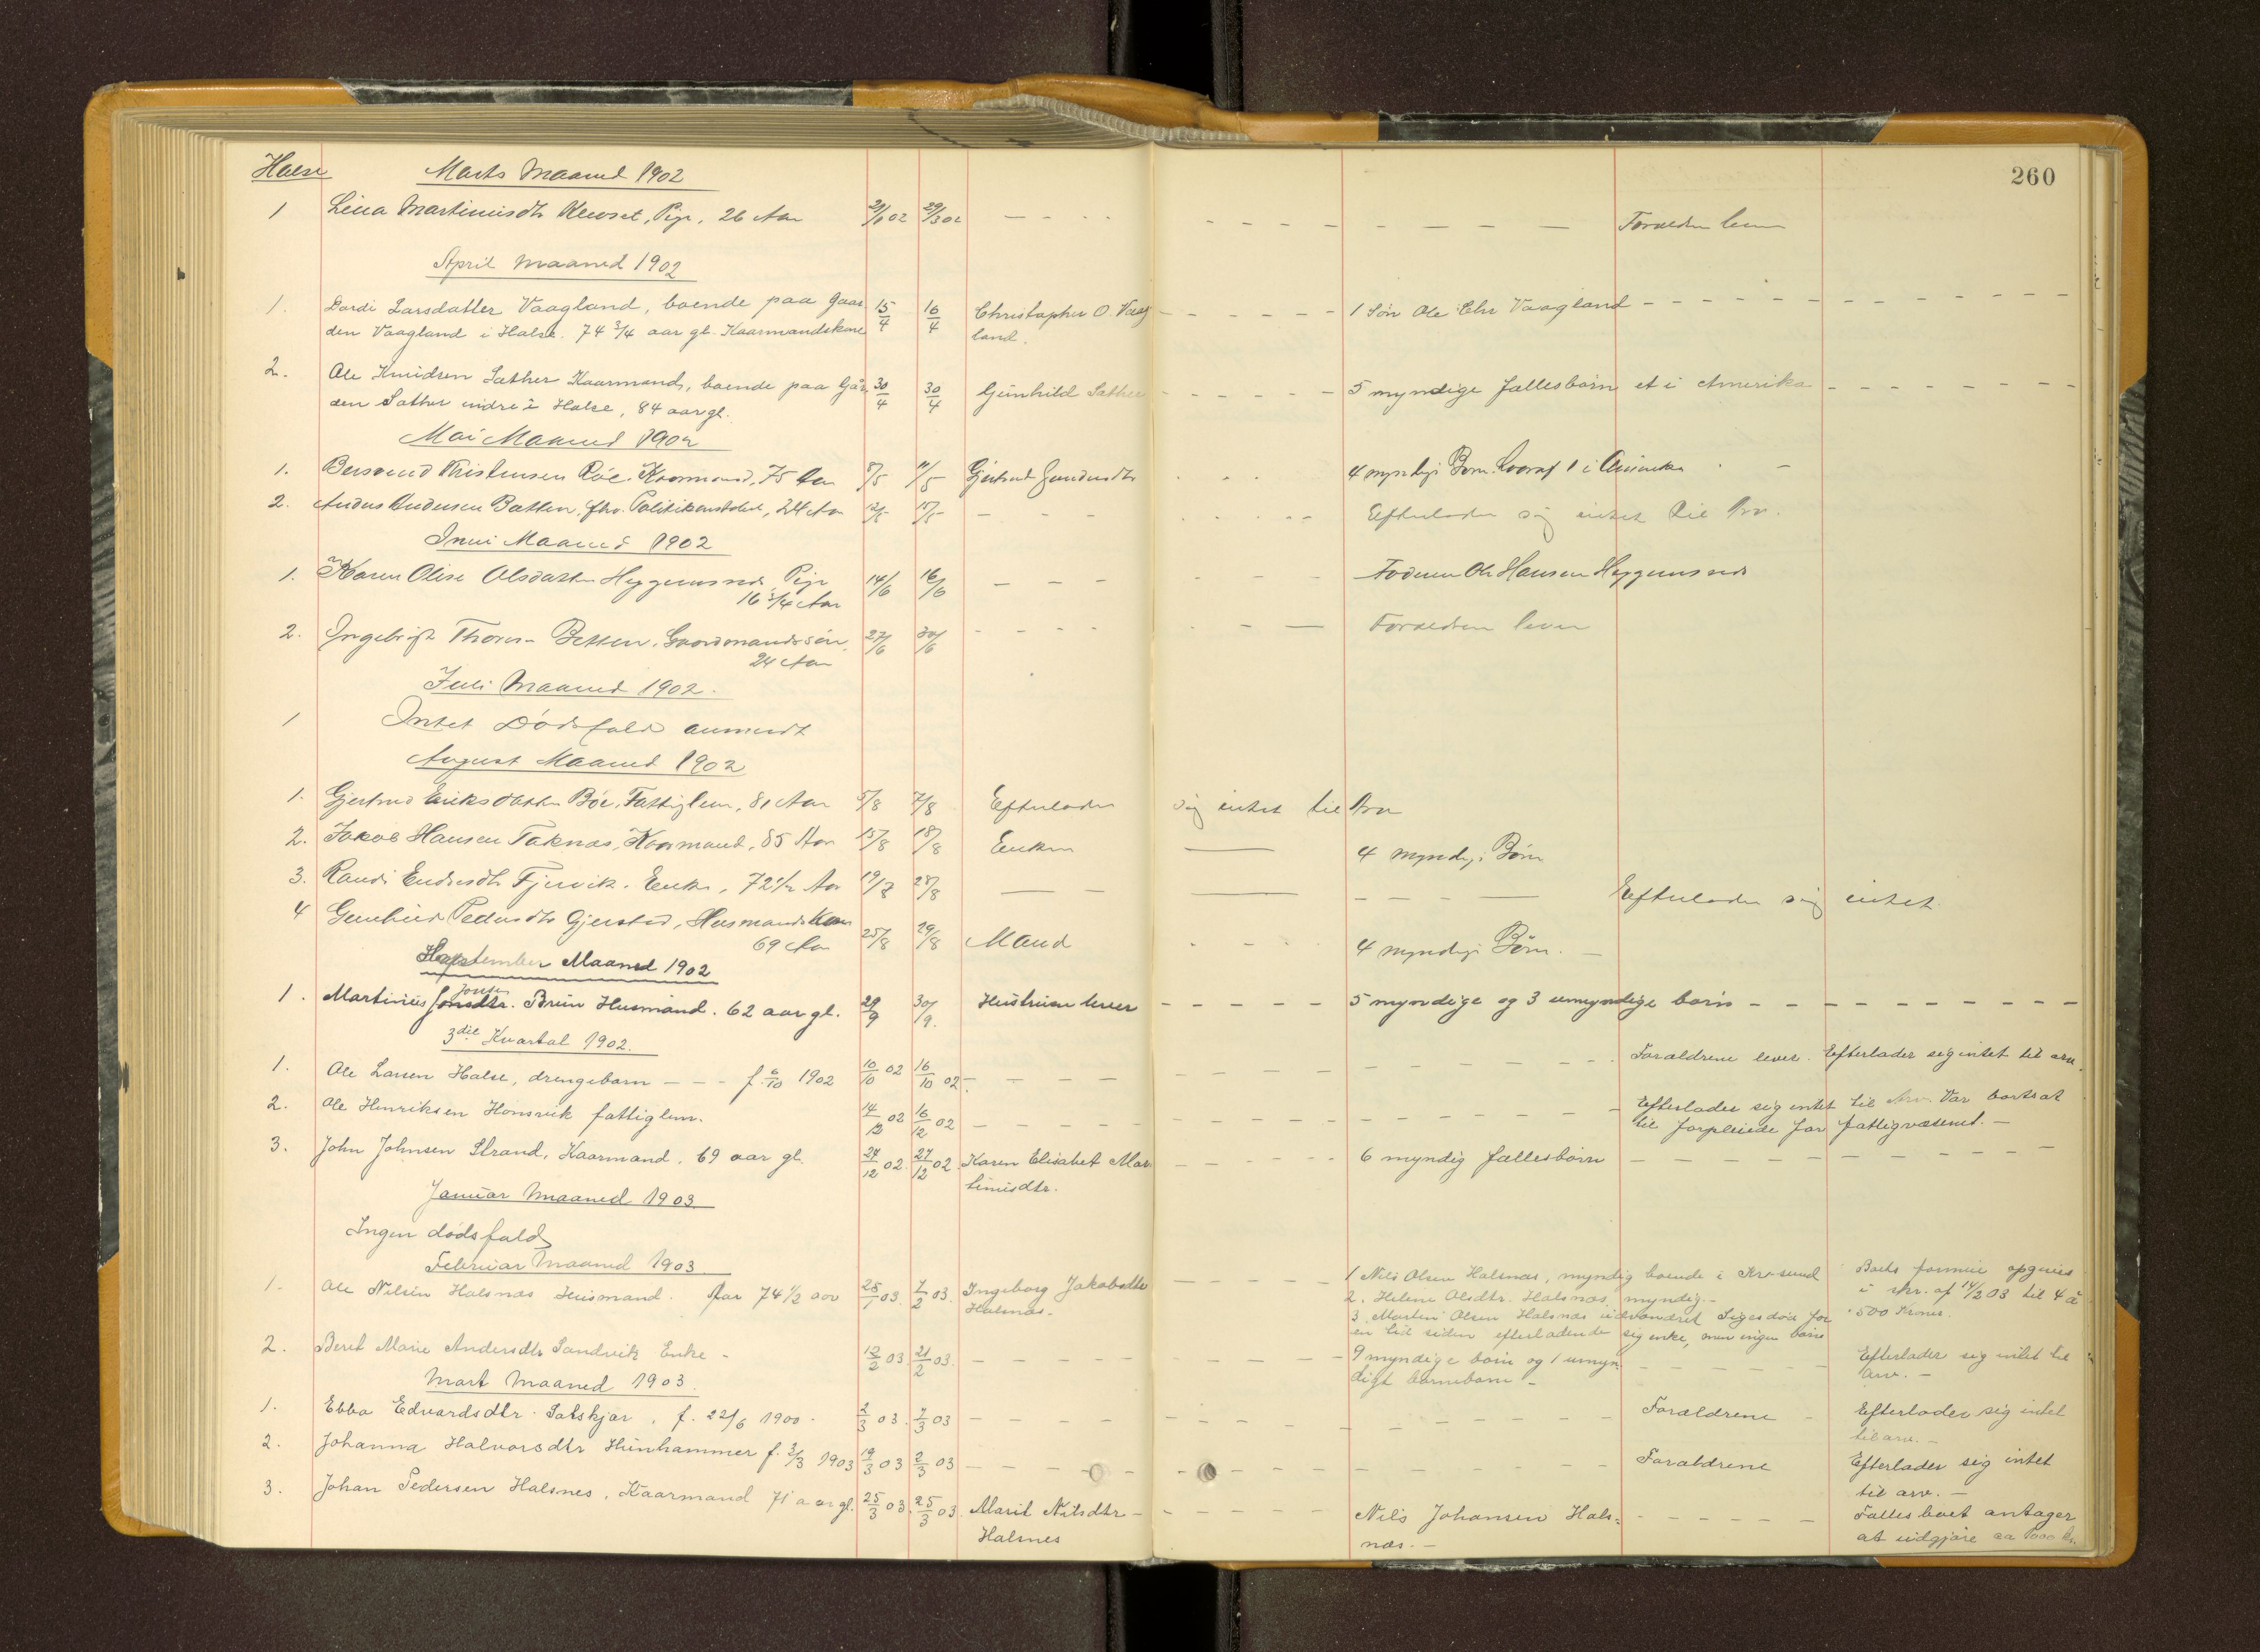 260
Halse Marts Maaned 1902
1 Lina Martinusdtr , Pige, 26 Aar 02 29/3 02 - - - - Forældrene lever
April Maaned 1902
1. Dordi Larsdatter Vaagland, boende paa Gaar 15/4 16/4 Christopher O. Vaag - - - - - 1 Søn Ole Chr Vaagland - - - -
den Vaagland i Halse. 74 3/4 aar gl. Kaarmandskone land.
2. Ole Knudsen Sæther Kaarmand, boende paa Går 30/4 30/4 Gunhild Sæther - - - - 5 myndige fællesbørn et i Amerika - - - -
den Sæther indre i Halse, 84 aar gl.
Mai Maaned 1902
1. Bersvend Kristensen Røe. Kaarmand, 75 Aar 8/5 11/5 Gjertrud - - - 4 myndige Børn hvoraf 1 i Amerika - -
2. Anders Andersen Botten, fhv. Politikonstabel, 24 Aar 12/5 - - - - Efterlader sig intet til Arv.
Juni Maaned 1902
1. Karen Olise Olsdatter Heggemsnes Pige 14/6 16/6 - - - - - - Ole Hansen Heggemsnes
16 3/4 Aar
2. Ingebrigt Thores- Betten. Gaardmandssøn, 27/6 30/6 - - - - - - Forældrene lever
24 Aar
Juli Maaned 1902.
1 Intet Dødsfald anmeldt
August Maaned 1902
1. Gjertrud Eriksdatter Bøe, Fattiglem, 81 Aar 5/8 7/8 Efterlader sig intet til Arv
2. Jakob Hansen Taknæs, Kaarmand, 85 Aar 15/8 18/8 Enken — 4 myndige Børn
3. Randi Endresdtr Fjervik. Enke, 72 1/2 Aar 19/8 28/8 — - — - - - — Efterlader sig intet
4 Gunhild Pedersdtr Gjerstad, Husmandskone 25/8 29/8 Mand - - - 4 myndige Børn. —
69 Aar
September Maaned 1902
Jonsen
1. Martinus Jonsdtr. Brun Husmand. 62 aar gl. 29/9 30/9. Hustruen lever - - - - - 5 myndige og 3 umyndige børn - - - -
3die Kvartal 1902.
1. Ole Larsen Halse, drengebarn - - - f. 6/10 1902 10/10 02 16/10 02 - - - - Forældrene lever. Efterlader sig intet til arv.
2. Ole Henriksen Honsvik fattiglem. 14/12 02 16/12 02 - - - - Efterlader sig intet til Arv. Var bortsat
til forpleiede for fattigvæsenet. -
3. John Johnsen Strand, Kaarmand, 69 aar gl. 24/12 02. 27/12 02. Karen Elisabet Mar- - - - - 6 myndig fællesbørn - - - -
tinusdtr.
Januar Maaned 1903
Ingen dødsfald
Februar Maaned 1903
1. Ole Nilsen Halsnæs Husmand. 74 1/2 aar 28/1 03. 7/2 03. Ingeborg Jakobsdtr - - - - 1 Nils Olsen Halsnæs, myndig boende i Kr.sund Boets formue opgives
Halsnæs. 2. Helene Olsdtr. Halsnæs, myndig. - i skr. af 14/2 03 til 4 à
3 Martin Olsen Halsnæs udvandret Siges død for 500 Kroner.
en tid siden efterladende sig enke, men ingen børn
2. Beret Marie Andersdtr Sandvik Enke - 12/2 03. 21/2 03. - - - - 9 myndige børn og 1 umyn- - - - - Efterlader sig intet til
digt barnebarn - arv. -
Mart Maaned 1903.
1. Ebba Edvardsdtr. Satskjær, f. 22/6 1900. 2/3 03. 7/3 03 - - - - Forældrene - Efterlader sig intet
til arv. -
2. Johanna Halvorsdtr Hunhammer f. 3/3 1903 19/3 03 2/3 03 - - - - Forældrene Efterlader sig intet
til arv. -
3. Johan Pedersen Halsnes, Kaarmand 71 a ar gl. 25/3 03. 25/3 03 Marit Nilsdtr - - - - Nils Johansen Hals= - - - - Fælles boet antager
Halsnes næs. - at udgjøre ca 1000 kr.